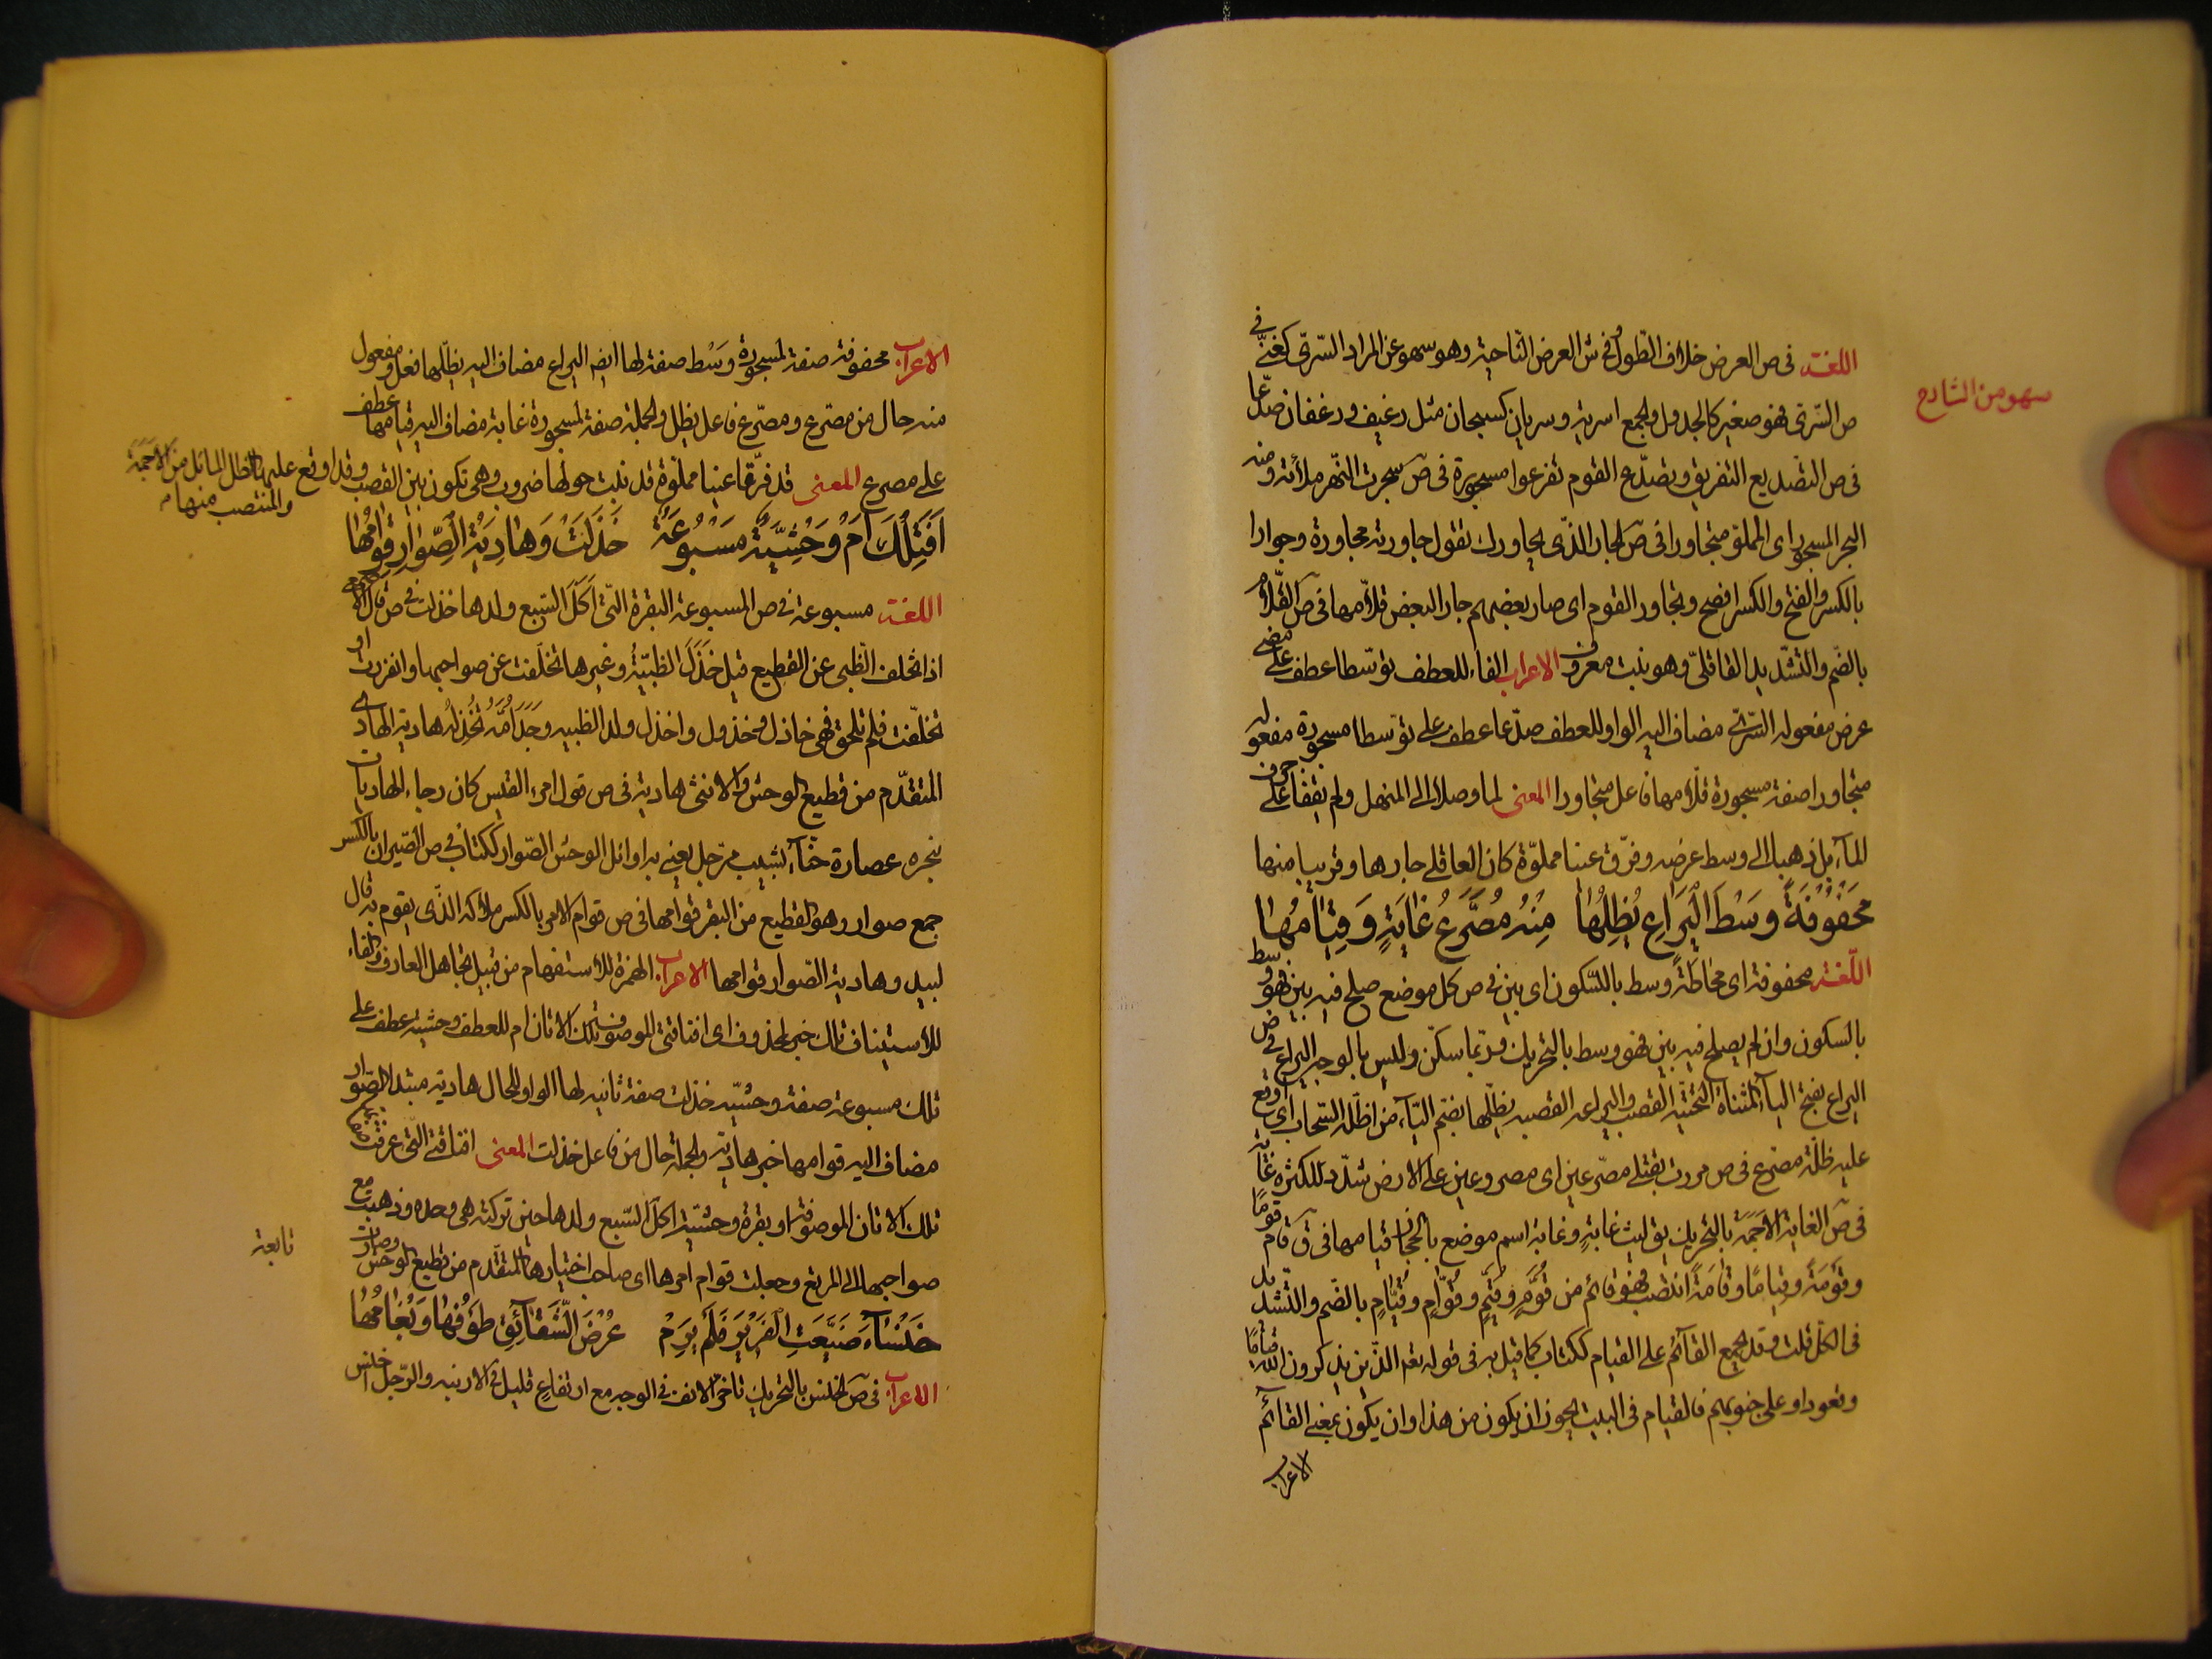 اللغة في ص العرض خلاف الطول وفي ش العرض الناحية وهو سهو عن المراد السّرّي كغنيّ في
سهو من الشارح
ص السّري نهر صغير كالجدول والجمع اسرية وسريان كسبحان مثل رغيف ورغفان صدّعا
في ص التصديع التفريق وتصدّع القوم تفرعوا مسجورة في ص سجرت النهر ملأته ومنه
البحر المسجور اى المملو متجاورا في ص الجار الذّى يجاورك تقول جاورته مجاورة وجوارا
بالكسر والفتح والكسر افصح وتجاور القوم اى صار بعضهم جار البعض قلّامها في ص القلّام
بالضّم والتشديد القاقلّي وهو نبت معروف الاعراب الفاء للعطف توسّطا عطف على مضى
عرض مفعوله السّرّي مضاف اليه الواو للعطف صدّعا عطف على توسّطا مسجورة مفعوله
متجاورا صفة مسجورة قلّامها فاعل متجاورا المعنى لما وصلا الى المنهل ولم يقفا على حرف
الماء بل ذهبا الى وسط عرضه وفرّق عينا مملوّة كان القاقلي جارها وقريبا منها
مَحْفُوفَةً وَسْطَ اليَرَاعِ يُظِلُّهَا مِنْهُ مُصَرَّعُ غَابَةٍ وَقِيَامُهَا
اللّغة محفوفة اى محاطة وسط بالسّكون اى بين في ص كل موضع صلح فيه بين فهو وسط
بالسكون وان لم يصلح فيه بين فهو وسط بالتحريك وربّما سكّن وليس بالوجه اليراع في ض
اليراع بفتح الياء المثناة التحتيه القصب واليراعه القصبه يظلّها بضم الياء من اظلّه السّحاب اى اوقع
عليه ظلّه مصّرع في ص مررت بقتلى مصّرعين اى مصروعين على الارض شدّد للكثرة غابة
في ص الغابة الاجمة بالتحريك يق ليث غابةٍ وغابة اسم موضع بالحجاز قيامها في ق قام قومًا
وقَومَةً وقِيامًا وقامَةً انتصب فهو قائم من قُوَّمٍ وقُيَّمٍ وقُوّامٍ وقُيّامٍ بالضّم والتشديد
في الكلّ قلت وقد يجمع القائم على القيام ككتاب كما قيل به في قوله تعه الذّين يذكرون الله قيامًا
وقعودا وعلى جنوبهم فالقيام في البيت يجوز ان يكون من هذا وان يكون بمعنى القائم
الاعراب
الاعراب محفوفة صفة لمسجورة وَسْط صفة لها ايضا اليراع مضاف اليه يظلّها فعل ومفعول
منه حال من مصرّع ومصرّع فاعل يظل والجملة صفة لمسجورة غابة مضاف اليه قيامها عطف
على مصرع المعنى قد فرّقا عينا مملوّة قد نبت حولها ضروب وهى تكون بين القصب وقد اوقع عليها بالظل المائل من الاجَمَة
والمنتصب منها
اَفَتِلْكَ اَمْ وَحْشِيَّةٌ مَسْبُوعَةٌ خَذَلَتْ وَهَادِيَةُ الصِّوَارِ قِوَامُهَا
اللغة مسبوعة في ص المسبوعة البقرة التّي اَكَلَ السّبع ولدها خذلت في ص
اذا تخلف الظبي عن القطيع قيل خَذَلَ الظبيّة وغيرها تخلّفت عن صواحبها وانفردت او
تخلّفت فلم تلحق فهى خاذل وخذول واخذل ولد الظبيه وَجَدَ اُمَّهُ تَخْذِلُهُ هادية الهادى
المتقدّم من قطيع الوحش والانثى هادية في ص قول امرء القيس كان دماء الهاديات
بنحره عصارة حنّآء بشيب مرجل يعني به اوائل الوحش الصّوار ككتاب في ص الصّيران بالكسر
جمع صوار وهو القطيع من البقر قوامها في ص قوام الامر بالكسر ملاكه الذّى يقوم به قال
لبيد وهادية الصّوار قوامها الاعراب الهمزة للاستفهام من قبيل تجاهل العارف والفاء
للاستيناف تلك خبر لمحذوف اى افناقتي الموصوفة تلك الاتان ام للعطف وحشية عطف على
تلك مسبوعة صفة وحشيّه خذلت صفة ثانيه لها الواو للحال هادية مبتدا الصّوار
مضاف اليه قوامها خبر هادية والجملة حال من فاعل خذلت المعنى افناقتي التّي عرفت
تلك الاتان الموصوفة او بقرة وحشيّة اكل السّبع ولدها حين تركته هى وحده وذهبت مع
صواحبها الى المرتع وجعلت قوام امرها اى صاحب اختيارها المتقدّم من قطيع الوحش وصارت
تابعة
خَنْسَآءُ ضَيَّعَتِ الفَرِيرَ فَلَمْ يَرِمْ عُرْضَ الشَّقَآئِقِ طَوْفُهَا وَبُغَامُهَا
الاعراب في ص الخنس بالتحريك تاخر الانف في الوجه مع ارتفاع قليل في الارنبه والرّجل اخنس